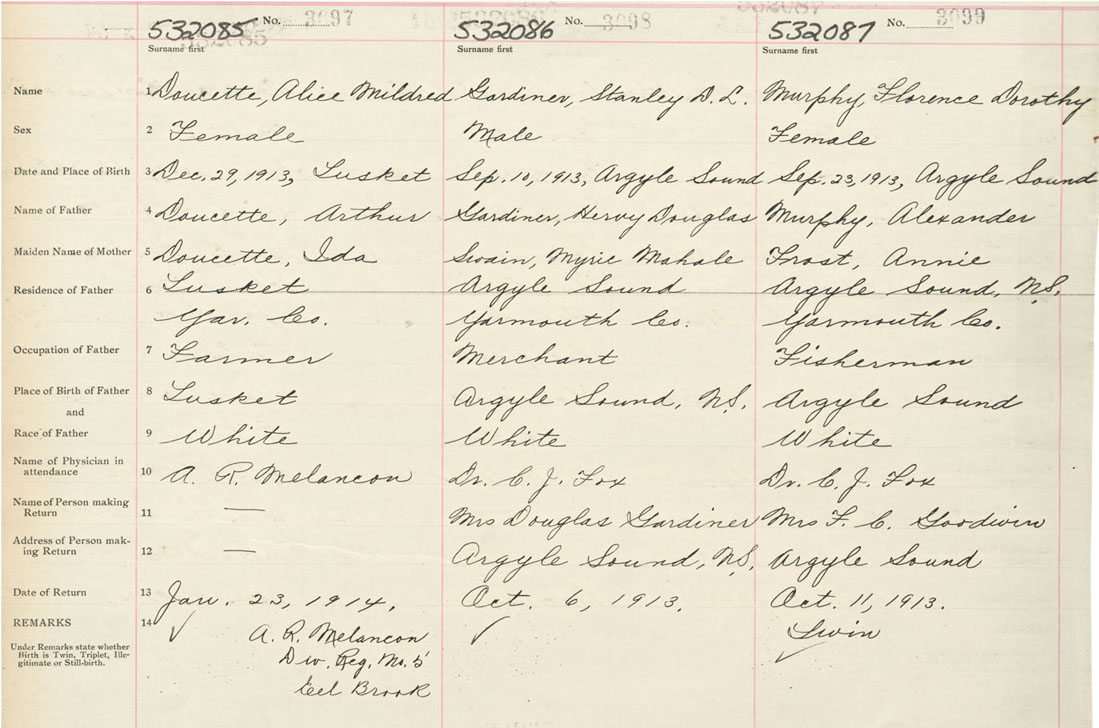 532085 No. 3097 532086 No. 3098 532087 No. 3099
Surname first Surname first Surname first
Name 1 Doucette, Alice Mildred Gardiner, Stanley D. L. Murphy, Florence Dorothy
Sex 2 Female Male Female
Date and Place of Birth 3 Dec. 29, 1913, Tusket Sep. 10, 1913, Argyle Sound Sep. 23, 1913, Argyle Sound
Name of Father 4 Doucette, Arthur Gardiner, Hervy Douglas Murphy, Alexander
Maiden Name of Mother 5 Doucette, Ida Swain, Myrie Mahale Frost, Annie
Residence of Father 6 Tusket Argyle Sound Argyle Sound, N.S.
Yar. Co. Yarmouth Co. Yarmouth Co.
Occupation of Father 7 Farmer Merchant Fisherman
Place of Birth of Father 8 Tusket Argyle Sound, N.S. Argyle Sound
and
Race of Father 9 White White White
Name of Physician in
attendance 10 A. R. Melancon Dr. C. J. Fox Dr. C. J. Fox
Name of Person making
Return 11 — Mrs Douglas Gardiner Mrs F. C. Goodwin
Address of Person mak-
ing Return 12 — Argyle Sound, N.S. Argyle Sound
Date of Return 13 Jan. 23, 1914. Oct. 6, 1913. Oct. 11, 1913.
REMARKS 14 ✓ A. R. Melancon ✓ Twin ✓
Under Remarks state whether
Birth is Twin, Triplet, Ille-
gitimate or Still-birth.
Div. Reg. No. 5
Eel Brook